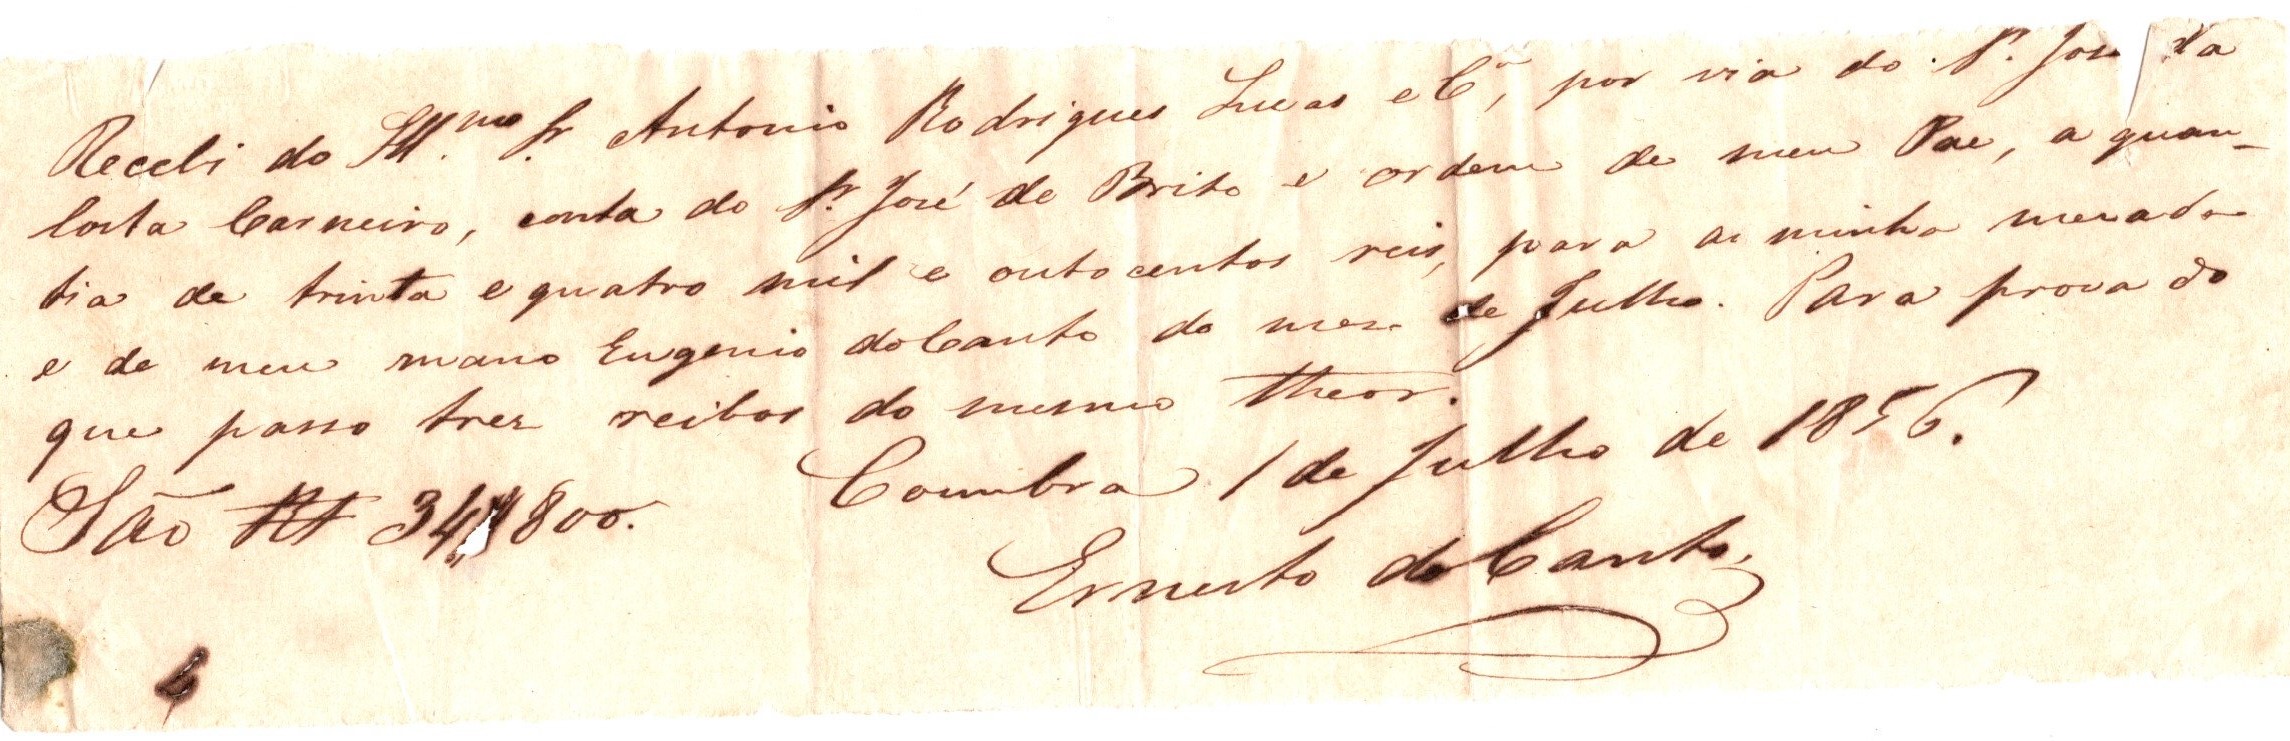 Recebi do Ill.mo Sr Antonio Rodrigues Lucas e C.a, por via do Sr. José da
Costa Carneiro, conta do Sr. José de Brito e ordem de meu Pae, a quan-
tia de trinta e quatro mil e outocentos reis, para a minha mezada
e de meu mano Eugenio do Canto do mez de Julho. Para prova do
que passo trez recibos do mesmo theor.
Coimbra 1 de Julho de 1856.
São Rs 34$800.
Ernesto do Canto.